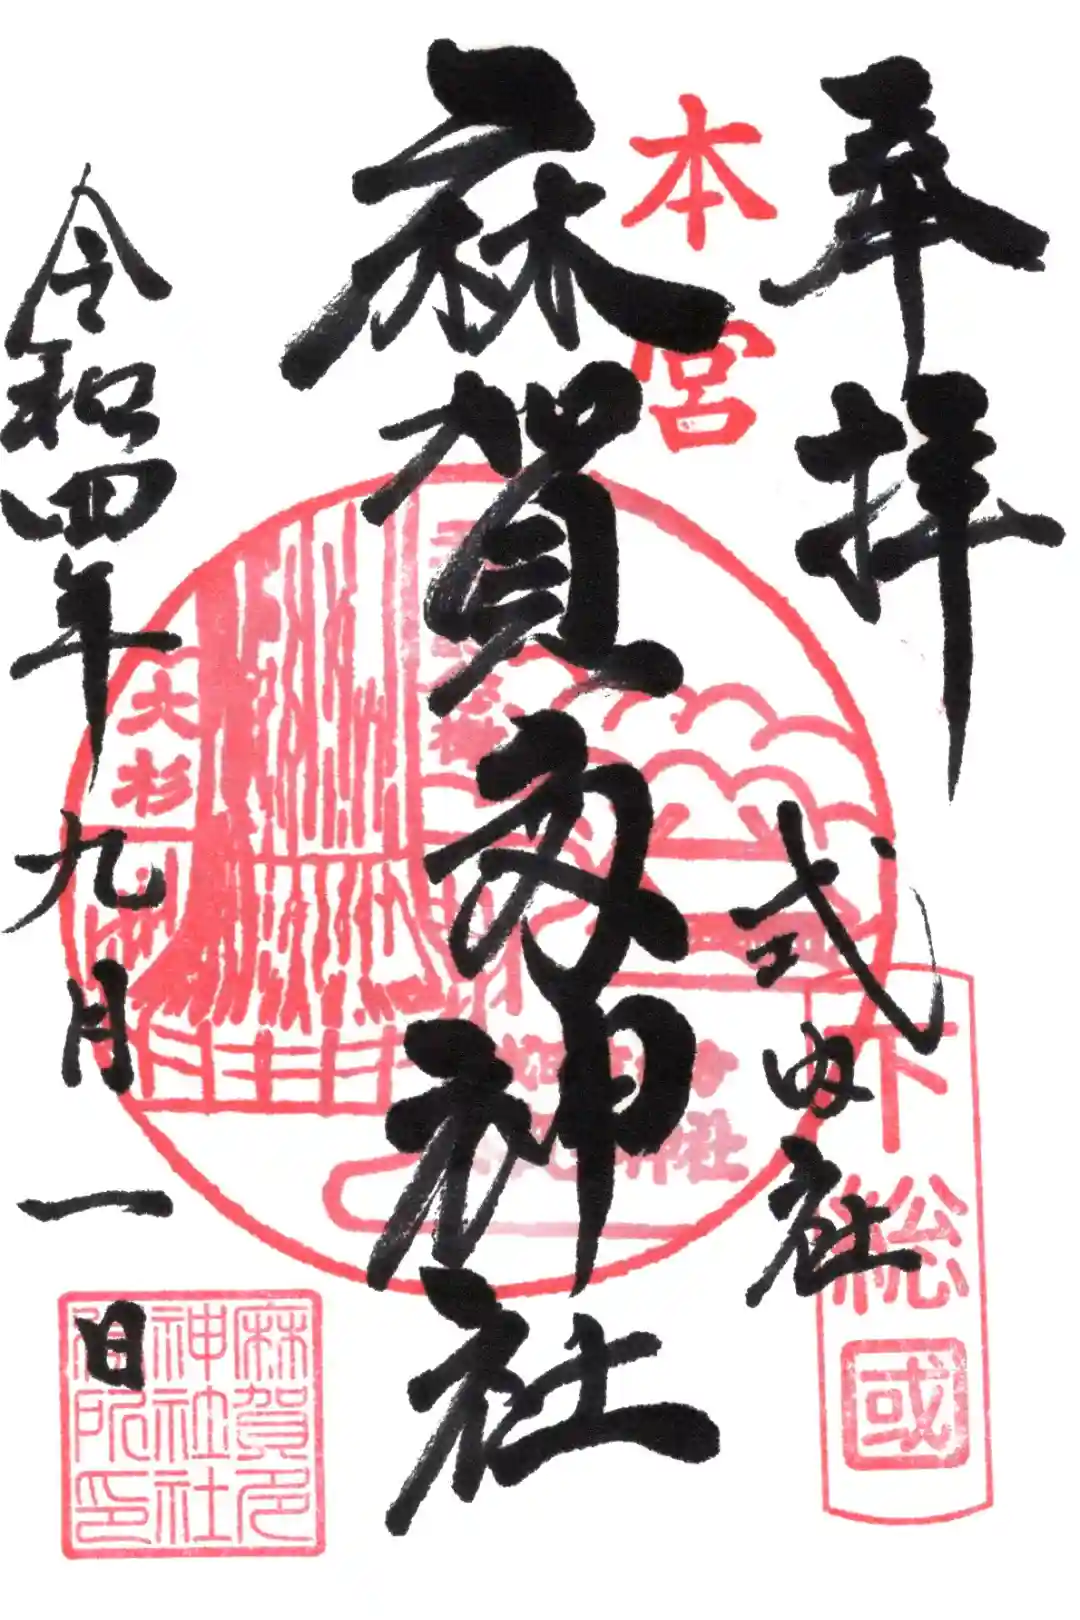 奉拝
本宮
式内社
下総國
麻賀多神社
大杉
令和四年九月一日
麻賀多
神社社
御所印